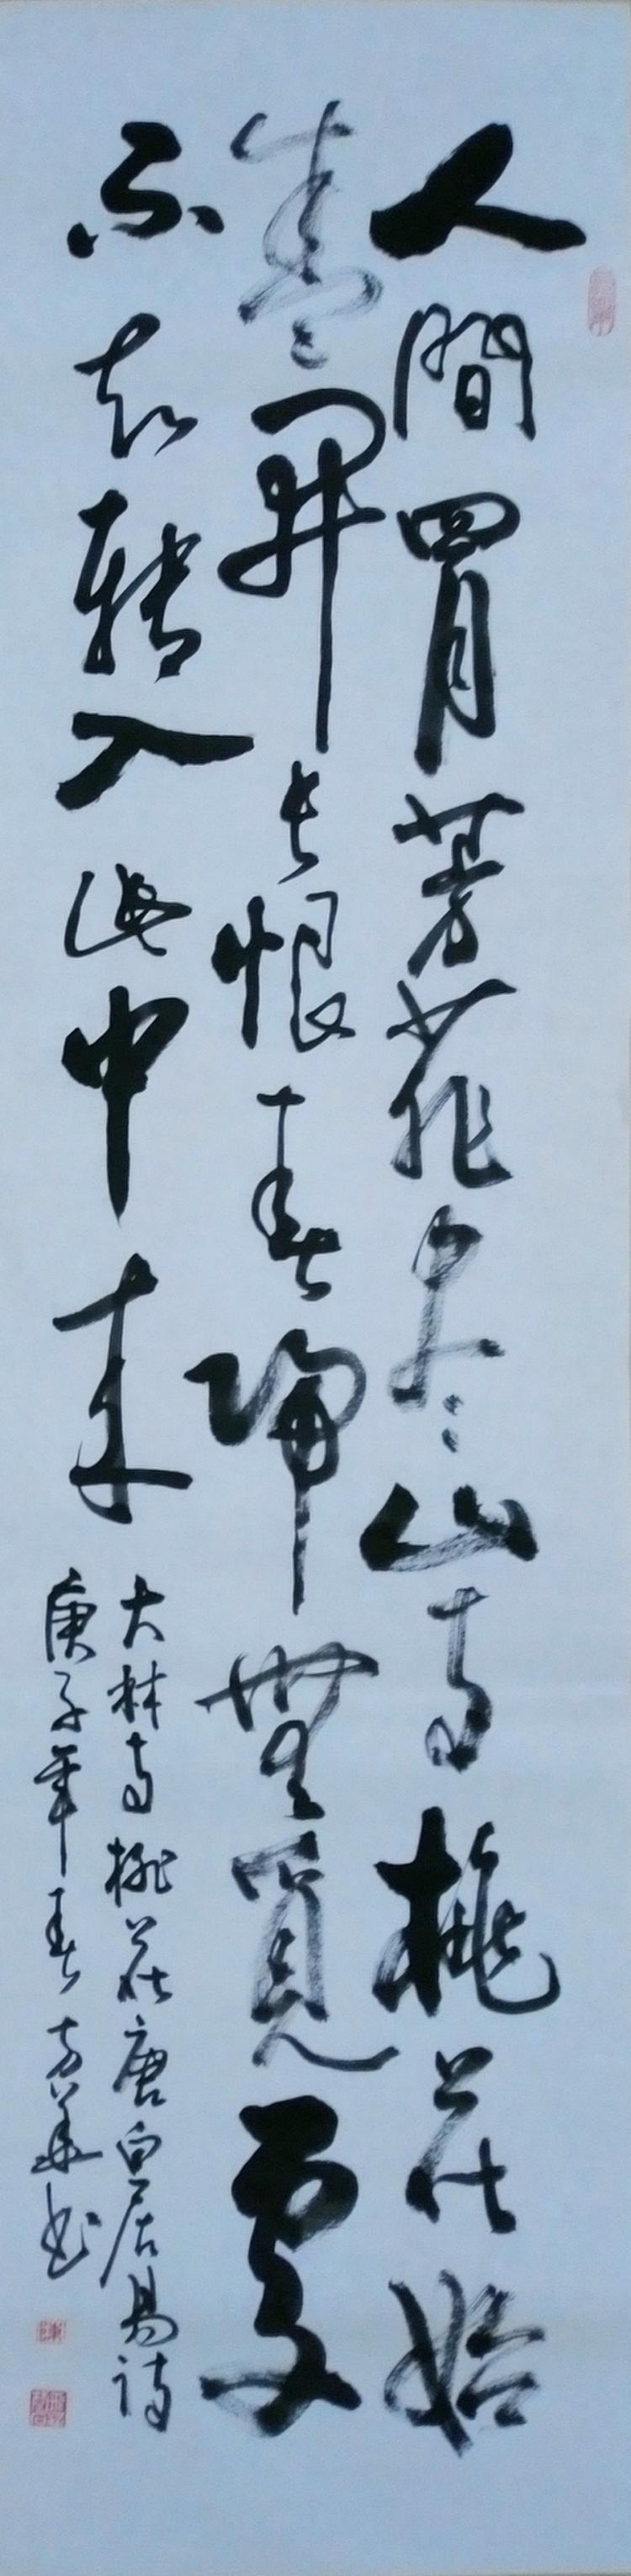 人間四月芳菲尽山寺桃花始
盛開長恨春歸無覓處
不知轉入此中来
大林寺桃花唐白居易詩
庚子年春方華书